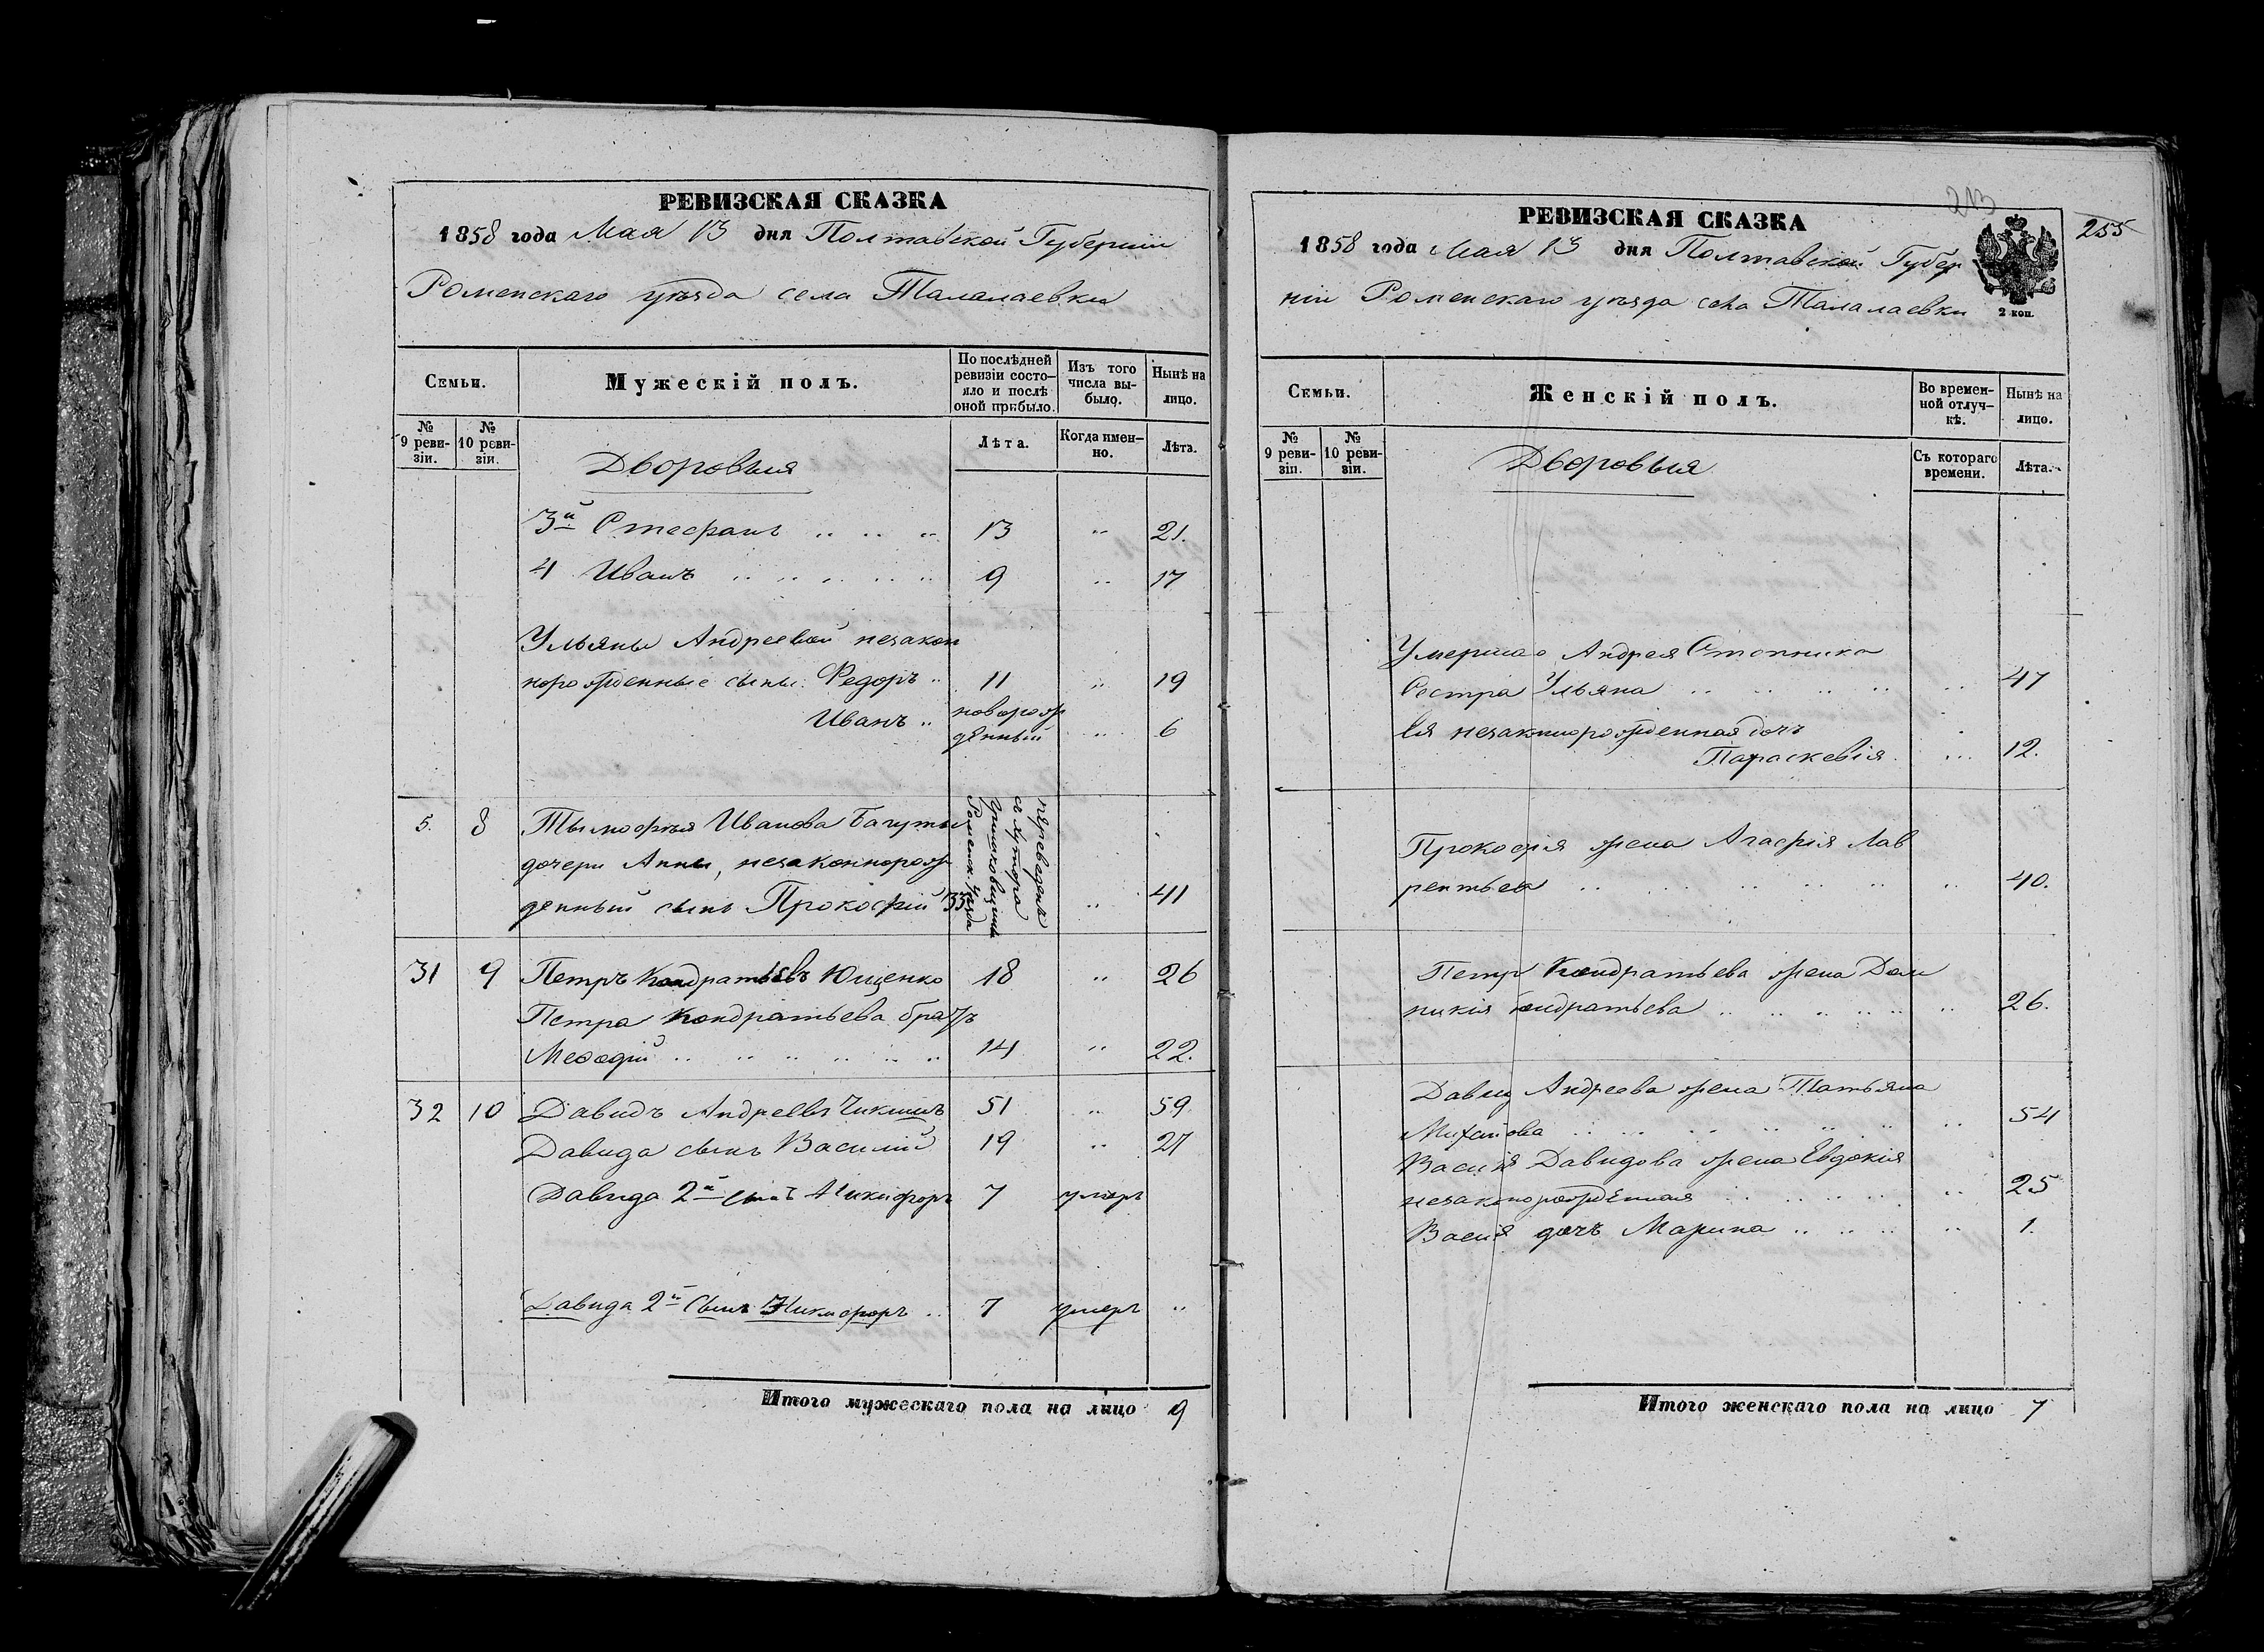 РЕВИЗСКАЯ СКАЗКА
1858 года Мая 13 дня Полтавской Губернии
Роменскаго уезда села Талалаевки
Семьи.
Мужескій полъ.
По послѣдней ревизіи состо-
яло и послѣ оной прибыло.
Изъ того числа вы-
было.
Нынѣ на лицо.
№ 9 реви-
зіи.
№ 10 реви-
зіи.
Лѣта.
Когда имен-
но.
Лѣта.
Дворовыя
3й Стефанъ 13 " 21.
4 Иванъ 9 " 17
Ульяны Андреевой незакон
норожденные сыны: Федоръ " 11 " 19
Иванъ " новорож
денный " 6
5. 8 Тимофея Иванова
дочери Анны, незаконнорож
денный сынъ Прокофій 33 " 41
переведенъ
съ хутора
Роменск. уезда
31 9 Петръ Кондратьевъ Ющенко 18 " 26
Петра Кондратьева братъ
Мефодій 14 " 22.
32 10 Давидъ Андреевъ Чикишъ 51 " 59
Давида сынъ Василій 19 " 27
Давида 2й сынъ Никифоръ 7 умеръ
Давида 2й Сынъ Никифоръ 7 умеръ "
Итого мужескаго пола на лицо 9
213
255
РЕВИЗСКАЯ СКАЗКА
1858 года Мая 13 дня Полтавской Губер
ніи Роменскаго уезда села Талалаевки
2 коп.
Семьи.
Женскій полъ.
Во времен-
ной отлуч-
кѣ.
Нынѣ на лицо.
№ 9 реви-
зіи.
№ 10 реви-
зіи.
Съ котораго времени.
Лѣта.
Дворовыя
Умершаго Андрея
Сестра Ульяна 47
Ея незаконнорожденная дочь
Параскевія 12.
Прокофія жена Агафія Лав
рентьева 40.
Петра Кондратьева жена Дом
никія Кондратьева 26.
Давида Андреева жена Татьяна
Михайлова 54
Василія Давидова жена Евдокія
незаконнорожденная 25
Василія дочь Марина 1.
Итого женскаго пола на лицо 7